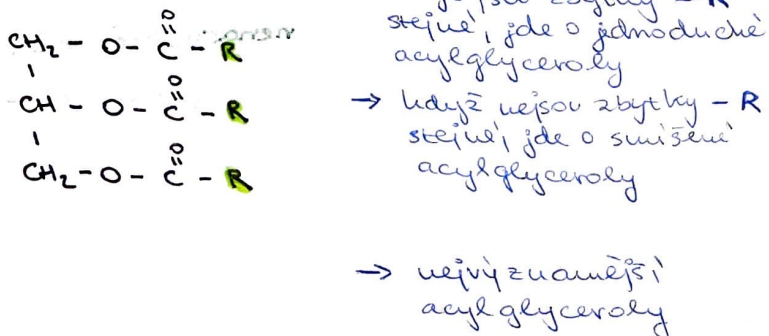 CH₂ - O - C - R
O
CH - O - C - R
O
CH₂ - O - C - R
O
- R
stejné, jde o jednoduché
acylglyceroly
→ když nejsou zbytky - R
stejné, jde o smíšené
acylglyceroly
→ nejvýznamější
acylglyceroly